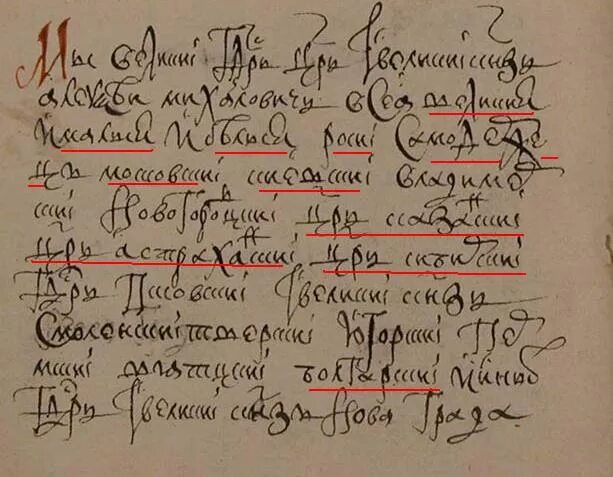 Мы великиі Гдрь Црь і великиі кнзь
алеѯѣи михаловичь всеа великия
и малыя и бѣлыя росиі самодерже
цъ московскиі киевскиі владимер
скиі новогороцкиі црь казанскиі
црь астраханскиі црь сибирскиі
гдрь псковскиі і великиі кнзь
смоленскиі тверскиі югорскиі пер
мскиі вятцкиі болгарскиі и иных
гдрь і великиі кнзь нова града